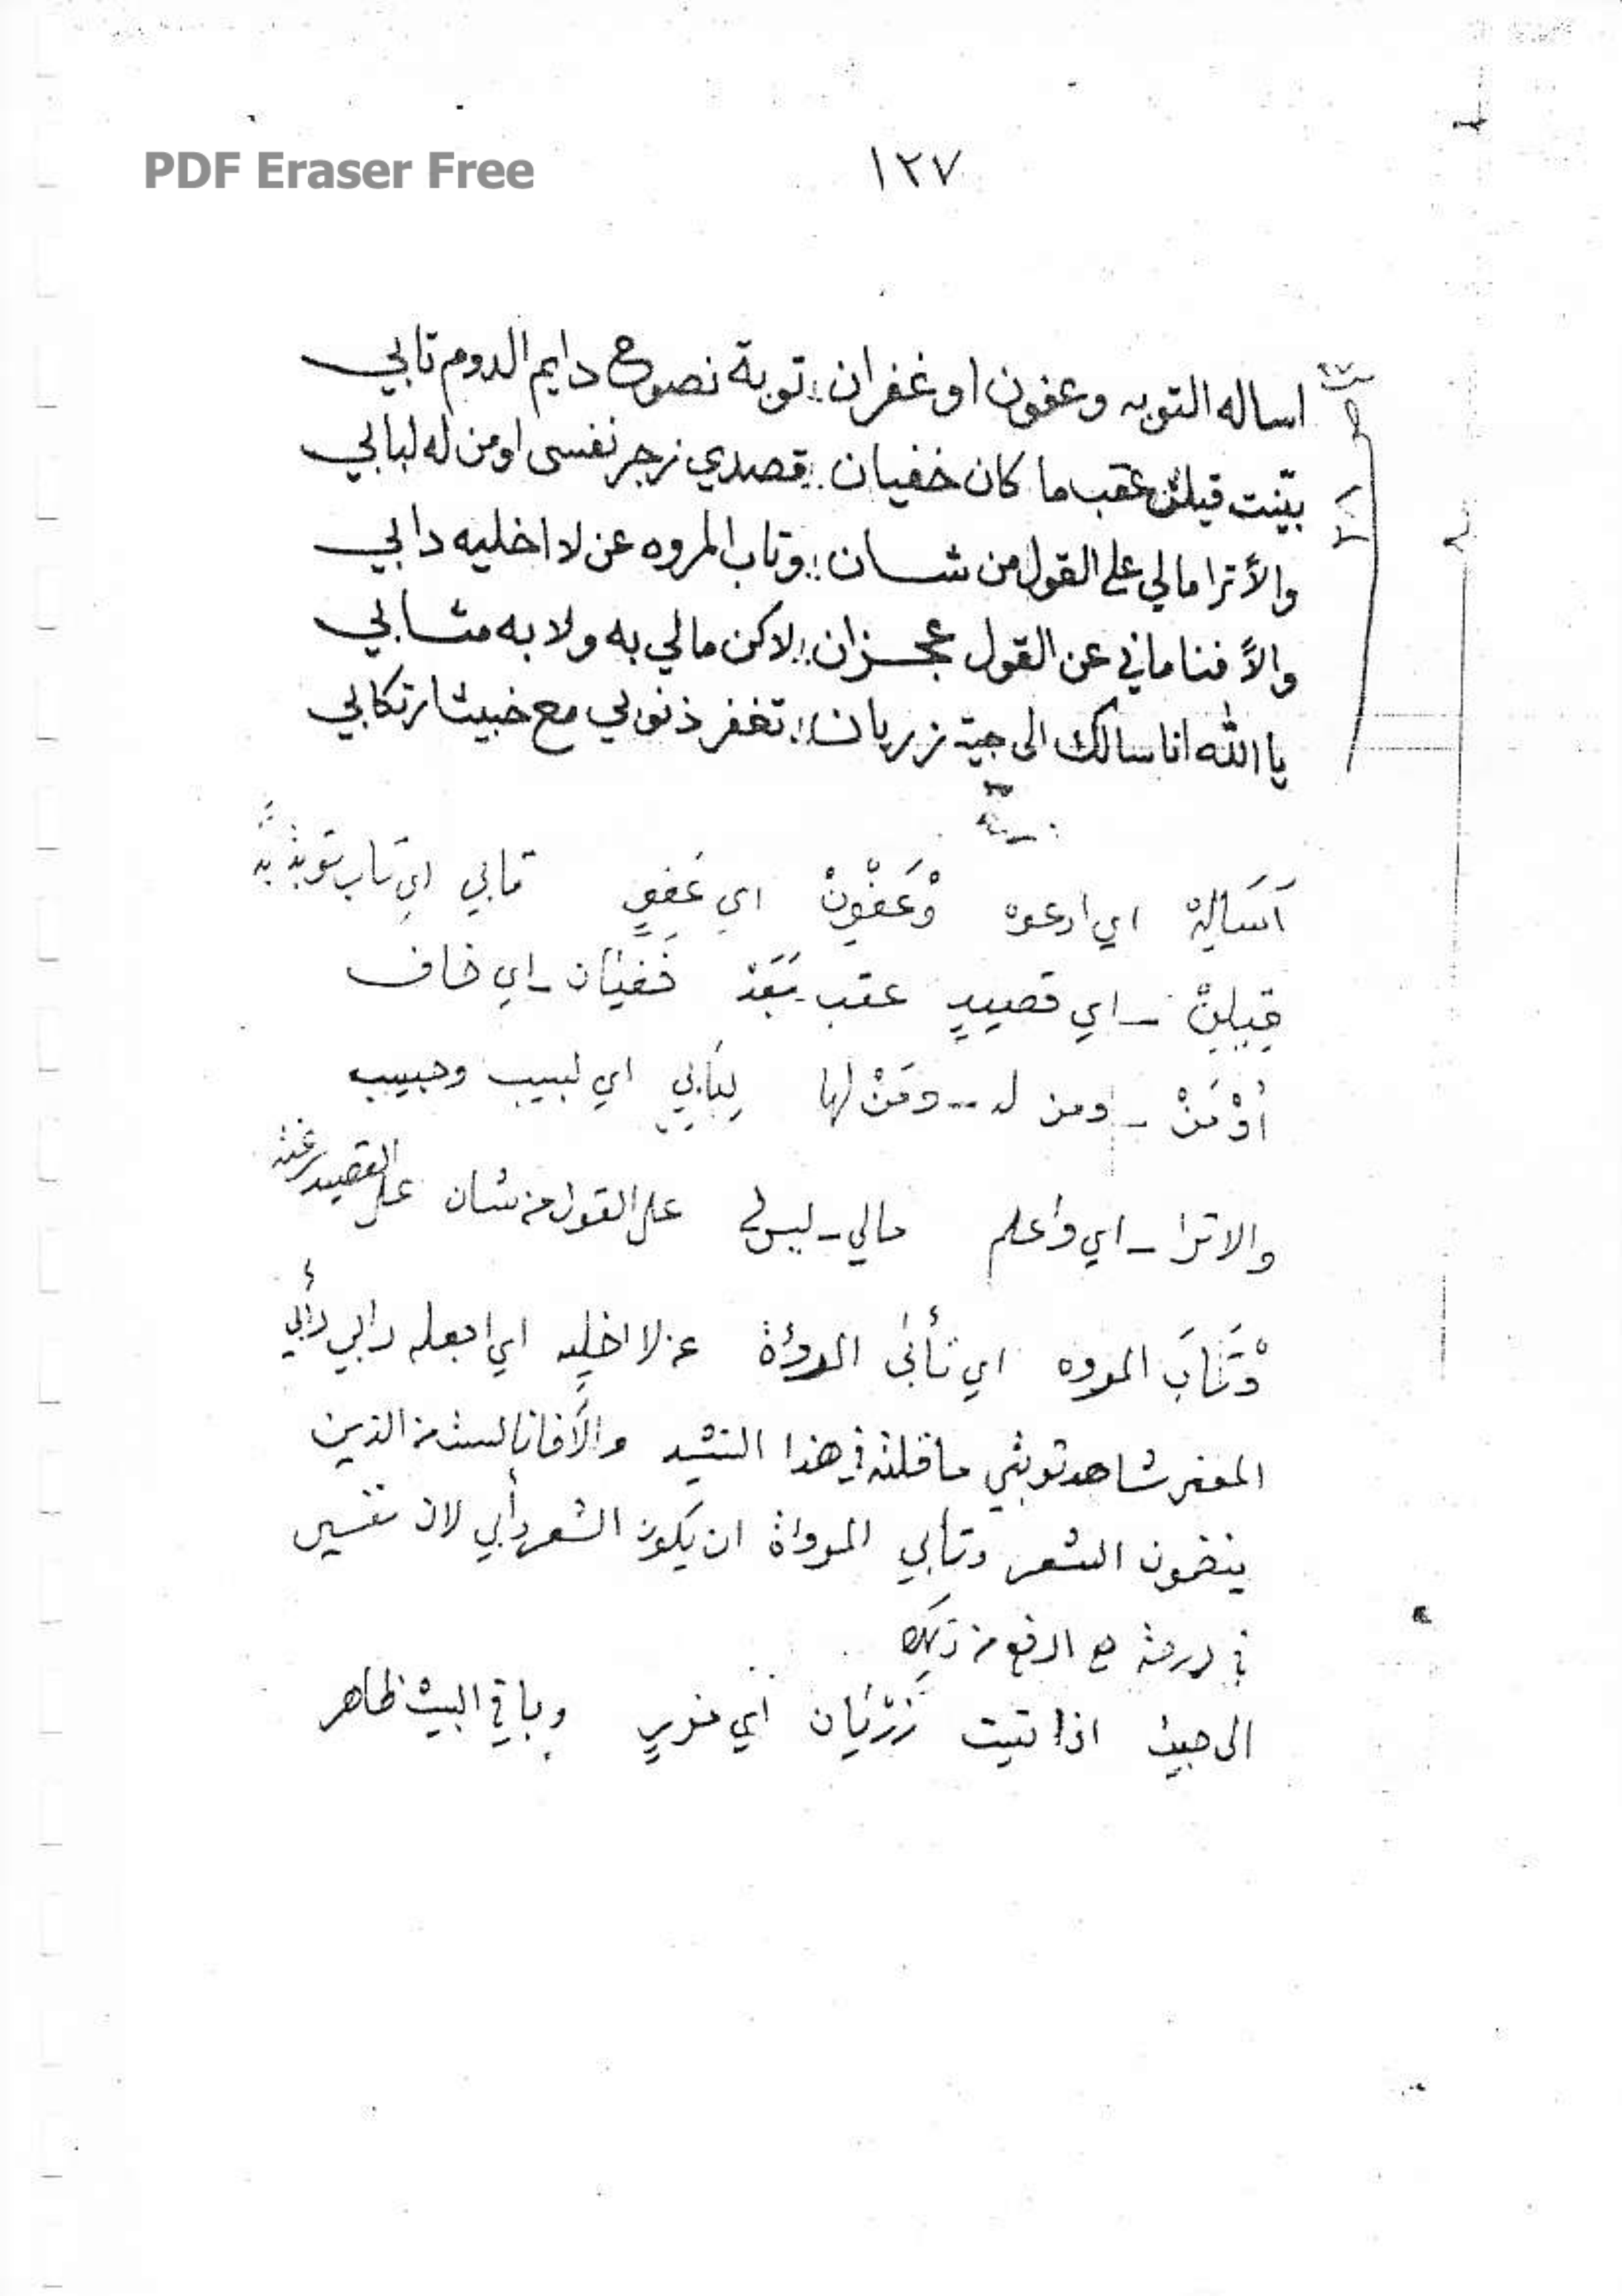 PDF Eraser Free
١٢٧
اساله التوبه وعفون او غفران :: توبة نصوح دايم الدوم تابي
بيّنت قيلتن عقب ما كان خفيان :: قصدي زجر نفسي اومن له لبابي
والاّ ترا مالي على القول من شان :: وتاب المروه عن لا اخليه دابي
والاّ فنا ماني عن القول عجزان :: لاكن مالي به ولا به مثابي
يا الله انا سالك الى جيت زريان :: تغفر ذنوبي مع خبيث ارتكابي
آسَالِهْ اي ادعوه وْعَفْوِنْ اي عَفوٍ تابي اي تاب
قِيلِتِنْ ـ اي قصيدٍ عقب بَعَدْ خَفيَان ـ اي خاف
أوْمَنْ ـ ومن له -- ومَنْ لها لِبَابي اي لبيب وحبيب
والا ترا ـ اي واعلم مالي ـ ليس لي على القول من شان على القصيد رغبته
وْتَابَ المروه اي تأبى المروءة عن لا اخليه اي اجعله دابي دأبي
المعنى شاهد توبتي ما قلته في هذا النشيد والاّ فانا لست من الذين
ينضمون الشعر وتأبي المرواة ان يكون الشعر دأبي لان نفسي
في درجة ارفع من ذلك
الى جيت اذا تيت زَرْيَان أي مزري وباقي البيت ظاهر